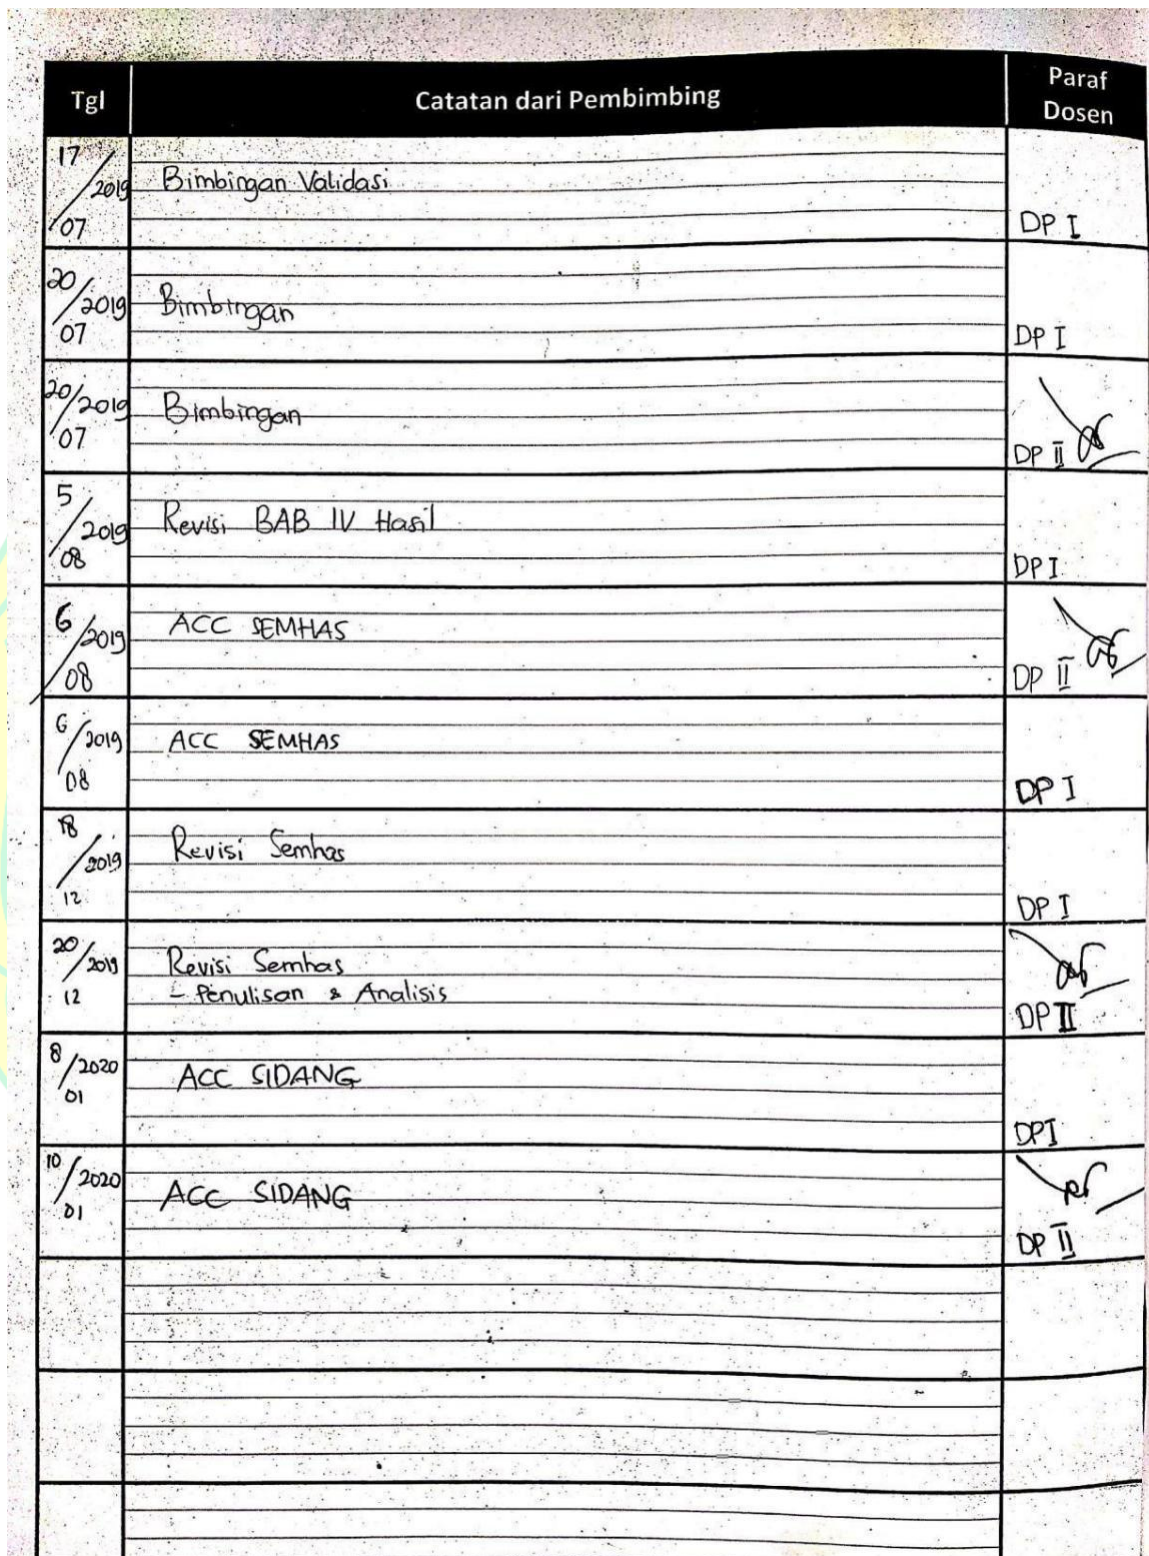 Tgl
Catatan dari Pembimbing
Paraf
Dosen
17/2019
07
Bimbingan Validasi
DP I
20/2019
07
Bimbingan
DP I
20/2019
07
Bimbingan
DP II
5/2019
08
Revisi BAB IV Hasil
DP I
6/2019
08
ACC SEMHAS
DP II
6/2019
08
ACC SEMHAS
DP I
18/2019
12
Revisi Semhas
DP I
20/2019
12
Revisi Semhas
- Penulisan & Analisis
DP II
8/2020
01
ACC SIDANG
DP I
10/2020
01
ACC SIDANG
DP II